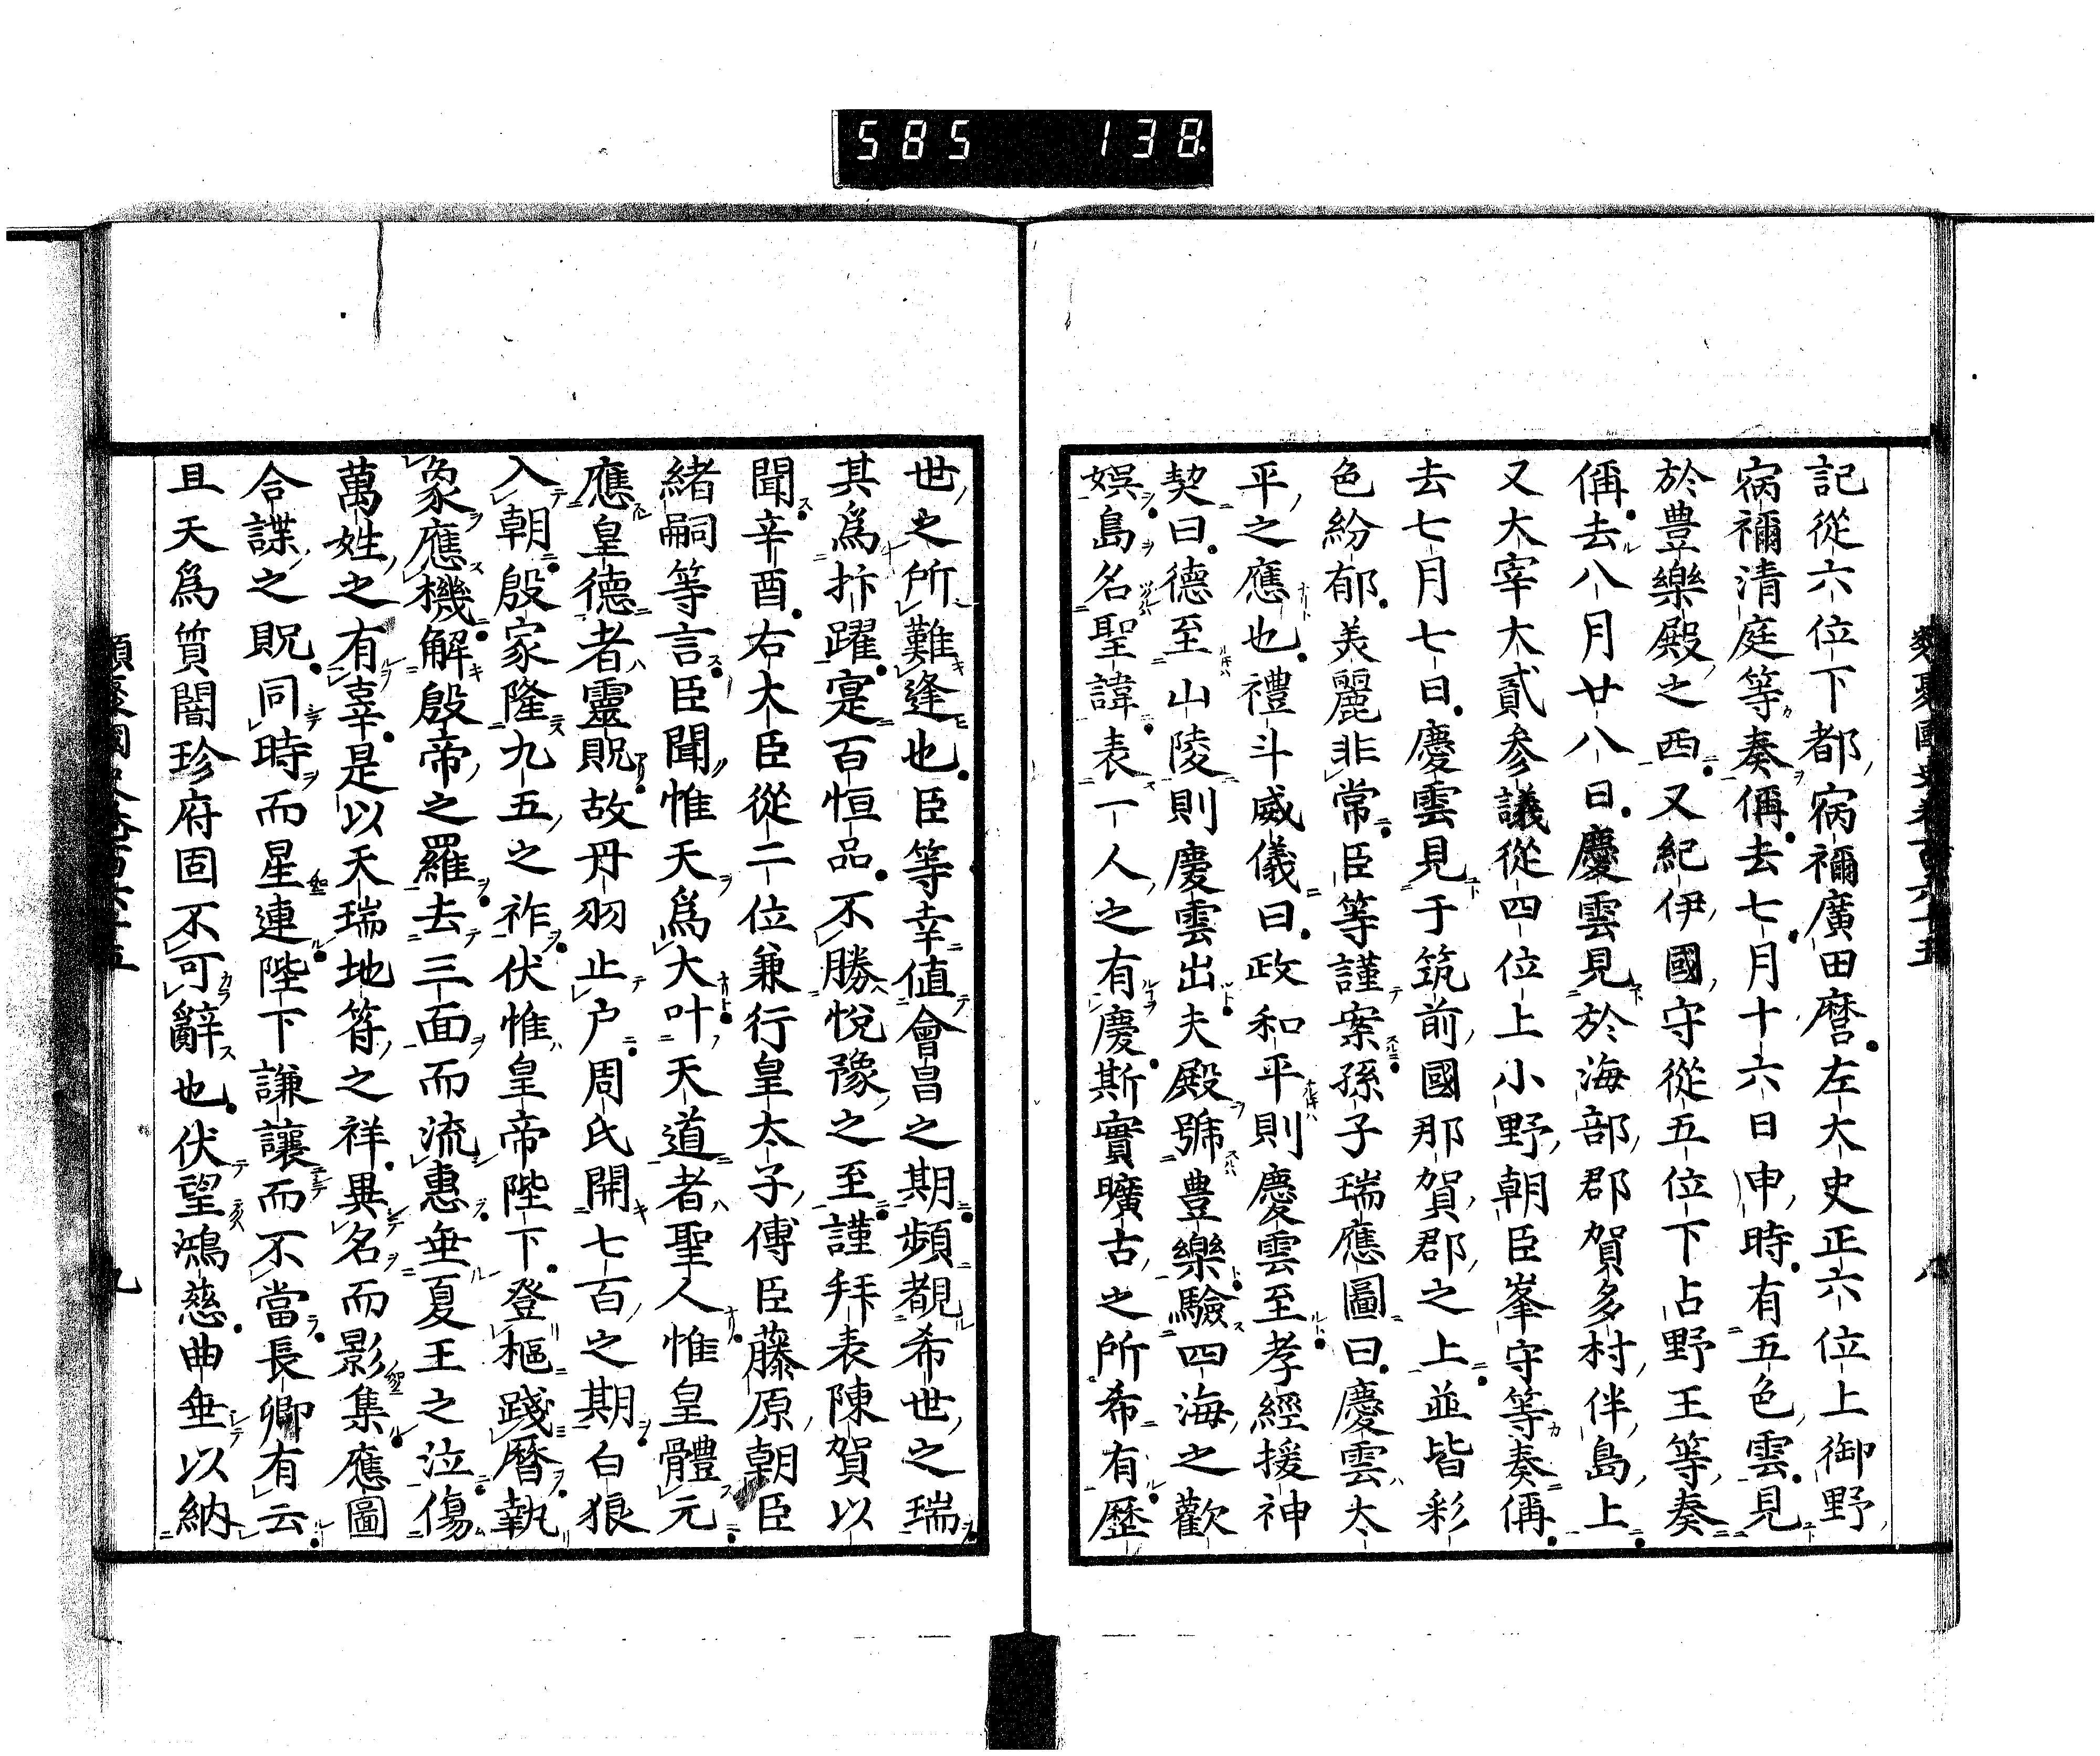 585 138
類聚國史卷一百六十五 八
記從六位下都病禰廣田麿左大史正六位上御野
病禰清庭等奏偁去七月十六日申時有五色雲見
於豊樂殿之西又紀伊國守從五位下占野王等奏
偁去八月廿八日慶雲見於海部郡賀多村伴島上
又大宰大貳参議從四位上小野朝臣峯守等奏偁
去七月七日慶雲見于筑前國那賀郡之上並皆彩
色紛郁美麗非常臣等謹案孫子瑞應圖曰慶雲太
平之應也禮斗威儀曰政和平則慶雲至孝經援神
契曰德至山陵則慶雲出夫殿號豊樂驗四海之歡
娯島名聖諱表一人之有慶斯實曠古之所希有歷
世之所難逢也臣等幸值會昌之期頻覩希世之瑞
其爲抃躍寔百恒品不勝悅豫之至謹拜表陳賀以
聞辛酉右大臣從二位兼行皇太子傅臣藤原朝臣
緒嗣等言臣聞惟天爲大叶天道者聖人惟皇體元
應皇德者靈貺故丹羽止户周氏開七百之期白狼
入朝殷家隆九五之祚伏惟皇帝陛下登樞踐曆執
象應機解殷帝之羅去三面而流惠垂夏王之泣傷
萬姓之有辜是以天瑞地符之祥異名而影集應圖
合諜之貺同時而星連陛下謙讓而不當長卿有云
且天爲質闇珍府固不可辭也伏望鴻慈曲垂以納
類聚國史卷百六十五 九